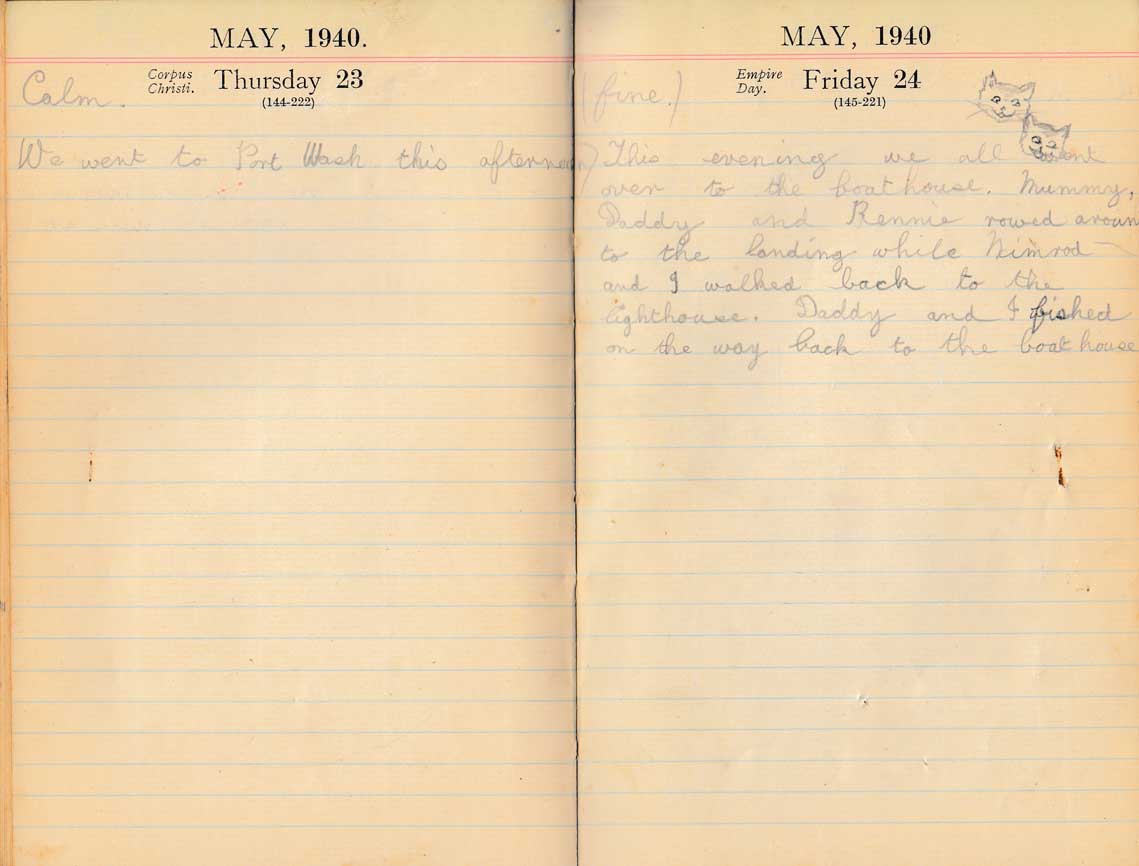 MAY, 1940.
Corpus Christi. Thursday 23
(144-222)
Calm.
We went to Port Wash this afternoon
MAY, 1940
Empire Day. Friday 24
(145-221)
(fine.)
This evening we all went
over to the boat house. Mummy,
Daddy and Rennie rowed aroun
to the landing while Nimrod
and I walked back to the
lighthouse. Daddy and I fished
on the way back to the boat house